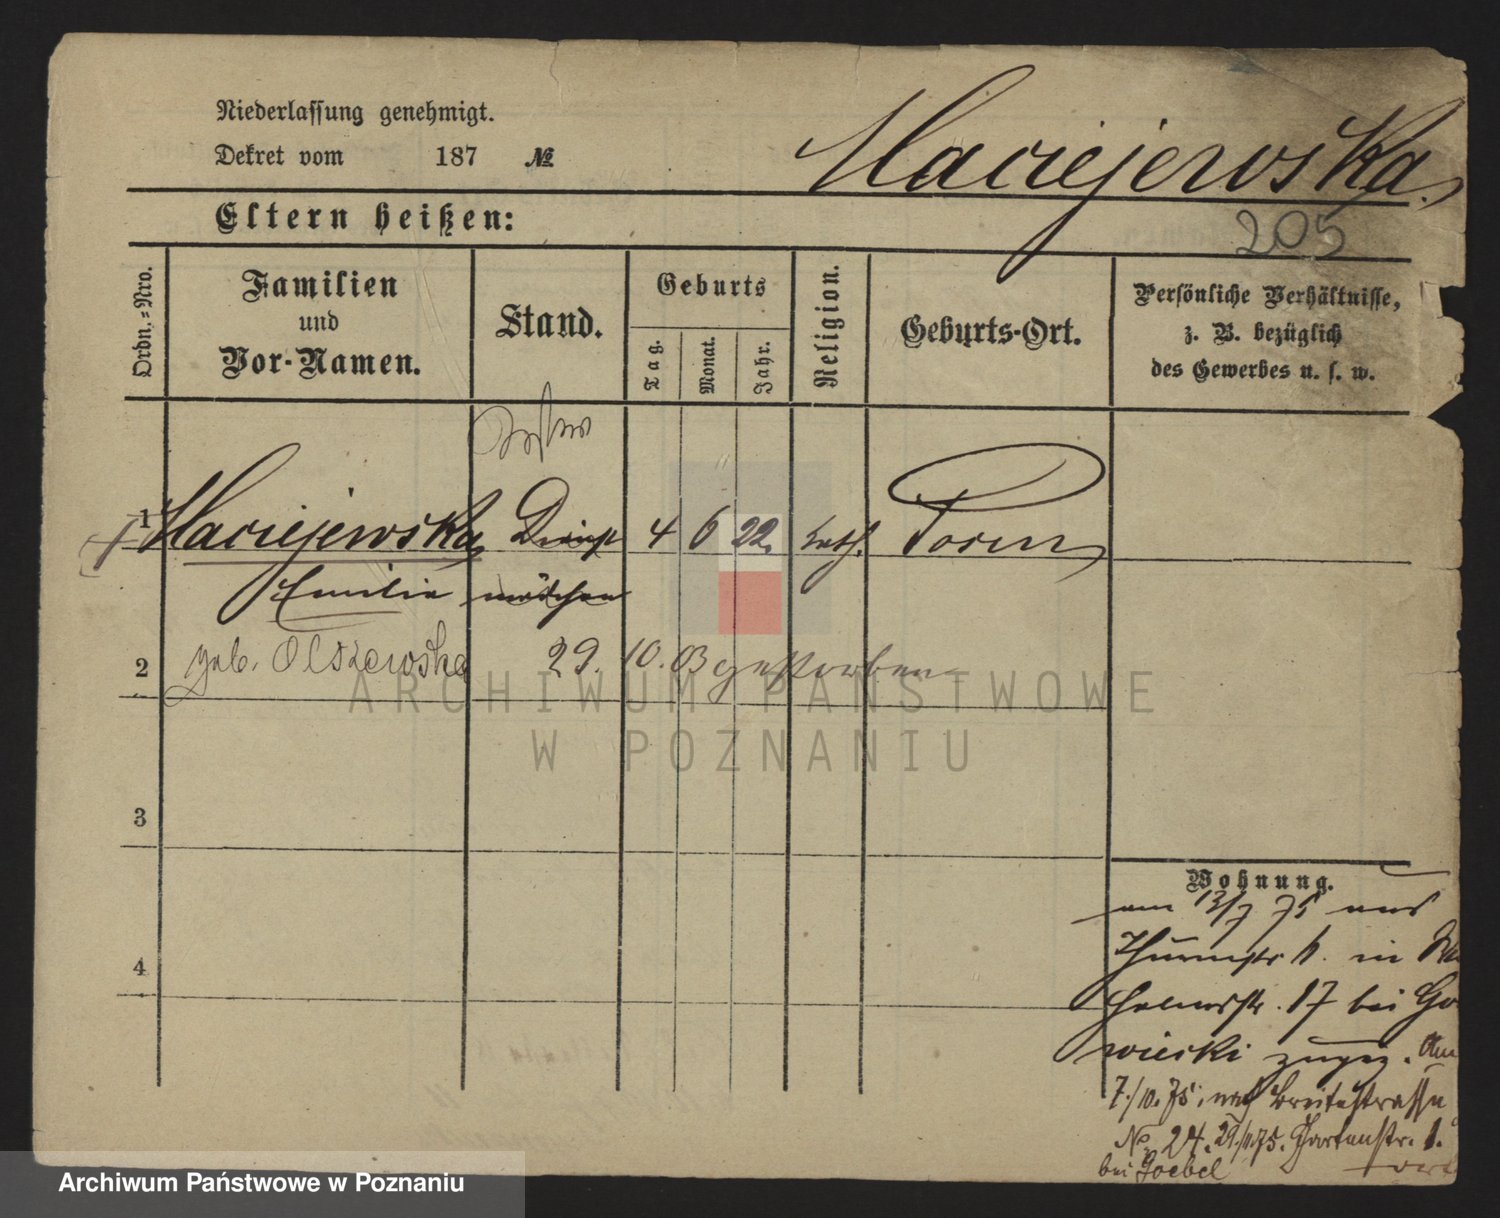 Niederlassung genehmigt.
Dekret vom 187 №
Maciejewska
205
Eltern heißen:
Ordn.-Nro.
Familien
und
Vor-Namen.
Stand.
Geburts
Tag.
Monat.
Jahr.
Religion.
Geburts-Ort.
Persönliche Verhältnisse,
z. B. bezüglich
des Gewerbes u. s. w.
1 Maciejewska Dienst 4 6 22. kath. Posen
Emilie mädchen
2 geb. Olszewska 29. 10. 03 gestorben
3
4
Wohnung.
am 13/7 75 aus
Thurmstr 6. in
17 bei Go
wieski zugez. Am
7./10. 75. nach Breitestrasse
No 24. 29./11.75. Gartenstr. 1.
bei Goebel
ARCHIWUM PAŃSTWOWE
W POZNANIU
Archiwum Państwowe w Poznaniu